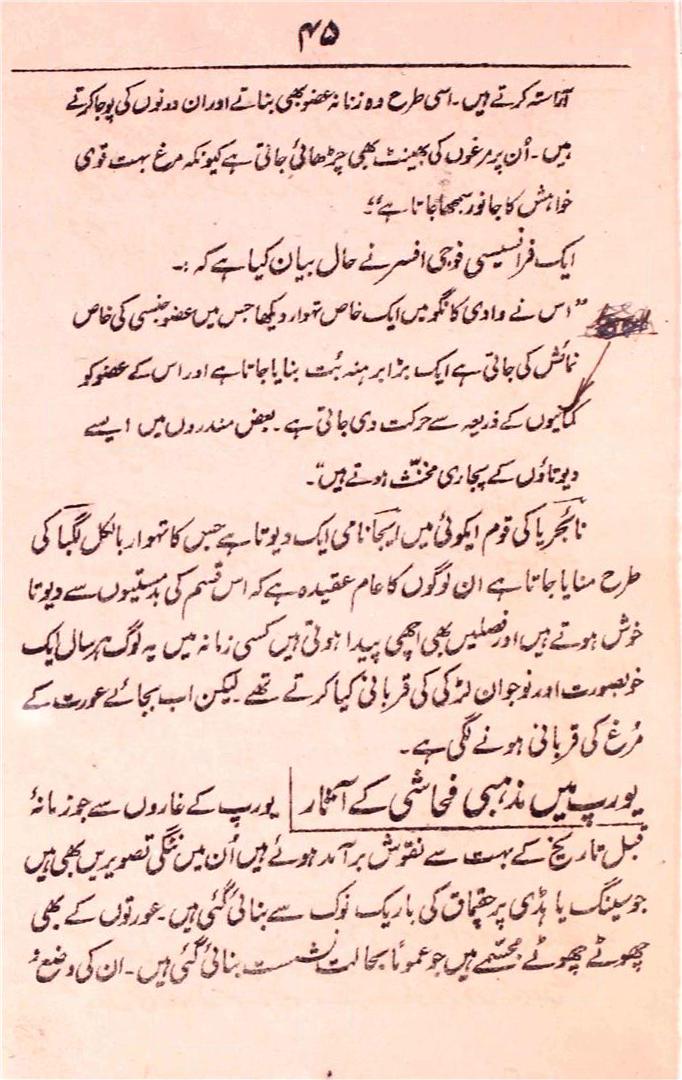 ۴۵
آراستہ کرتے ہیں۔ اسی طرح وہ زنانہ عضو بھی بناتے اور ان دونوں کی پوجا کرتے
ہیں۔ اُن پر مرغوں کی بھینٹ بھی چڑھائی جاتی ہے کیونکہ مرغ بہت قوی
خواہش کا جانور سمجھا جاتا ہے"۔
ایک فرانسیسی فوجی افسر نے حال بیان کیا ہے کہ :۔
"اس نے وادی کانگو میں ایک خاص تہوار دیکھا جس میں عضو جنسی کی خاص
نمائش کی جاتی ہے ایک بڑا برہنہ بُت بنایا جاتا ہے اور اس کے عضو کو
کمانیوں کے ذریعہ سے حرکت دی جاتی ہے۔ بعض مندروں میں ایسے
دیوتاؤں کے پجاری مخنّث ہوتے ہیں"۔
نائجریا کی قوم ایکوئی میں ایجانامی ایک دیوتا ہے جس کا تہوار بالکل لگبا کی
طرح منایا جاتا ہے ان لوگوں کا عام عقیدہ ہے کہ اس قسم کی بدمستیوں سے دیوتا
خوش ہوتے ہیں اور فصلیں بھی اچھی پیدا ہوتی ہیں کسی زمانہ میں یہ لوگ ہر سال ایک
خوبصورت اور نوجوان لڑکی کی قربانی کیا کرتے تھے۔ لیکن اب بجائے عورت کے
مُرغ کی قربانی ہونے لگی ہے۔
یورپ میں مذہبی فحاشی کے آثار یورپ کے غاروں سے جو زمانۂ
قبل تاریخ کے بہت سے نقوش برآمد ہوئے ہیں اُن میں ننگی تصویریں بھی ہیں
جو سینگ یا ہڈی پر چقماق کی باریک نوک سے بنائی گئی ہیں۔ عورتوں کے بھی
چھوٹے چھوٹے مجسّمے ہیں جو عموماً بحالت نشست بنائی گئی ہیں۔ ان کی وضع